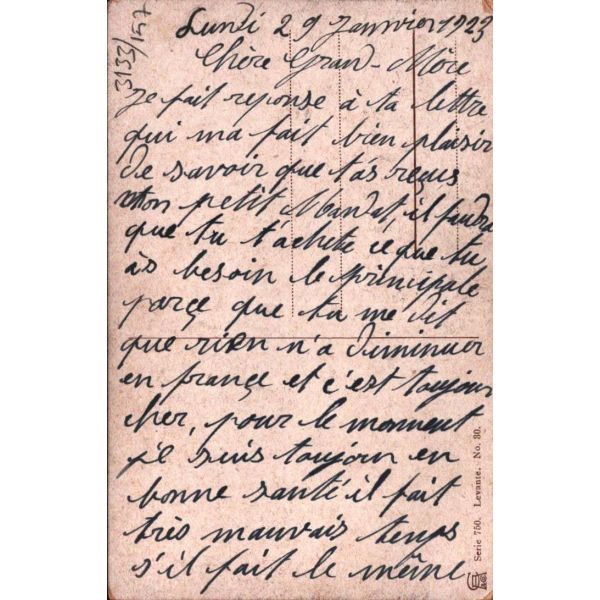 3133/157
Lundi 29 Janvier 1923
Chère Grand-Mère
Je fait reponse à ta lettre
qui ma fait bien plaisir
de savoir que t'as reçus
mon petit Mandat, il faudra
que tu t'achete ce que tu
às besoin le principale
parçe que tu me dit
que rien n'a diminuer
en françe et c'est toujour
cher, pour le moment
je suis toujour en
bonne santé il fait
très mauvais temps
s'il fait le même
Serie 750. Levante. No. 30.